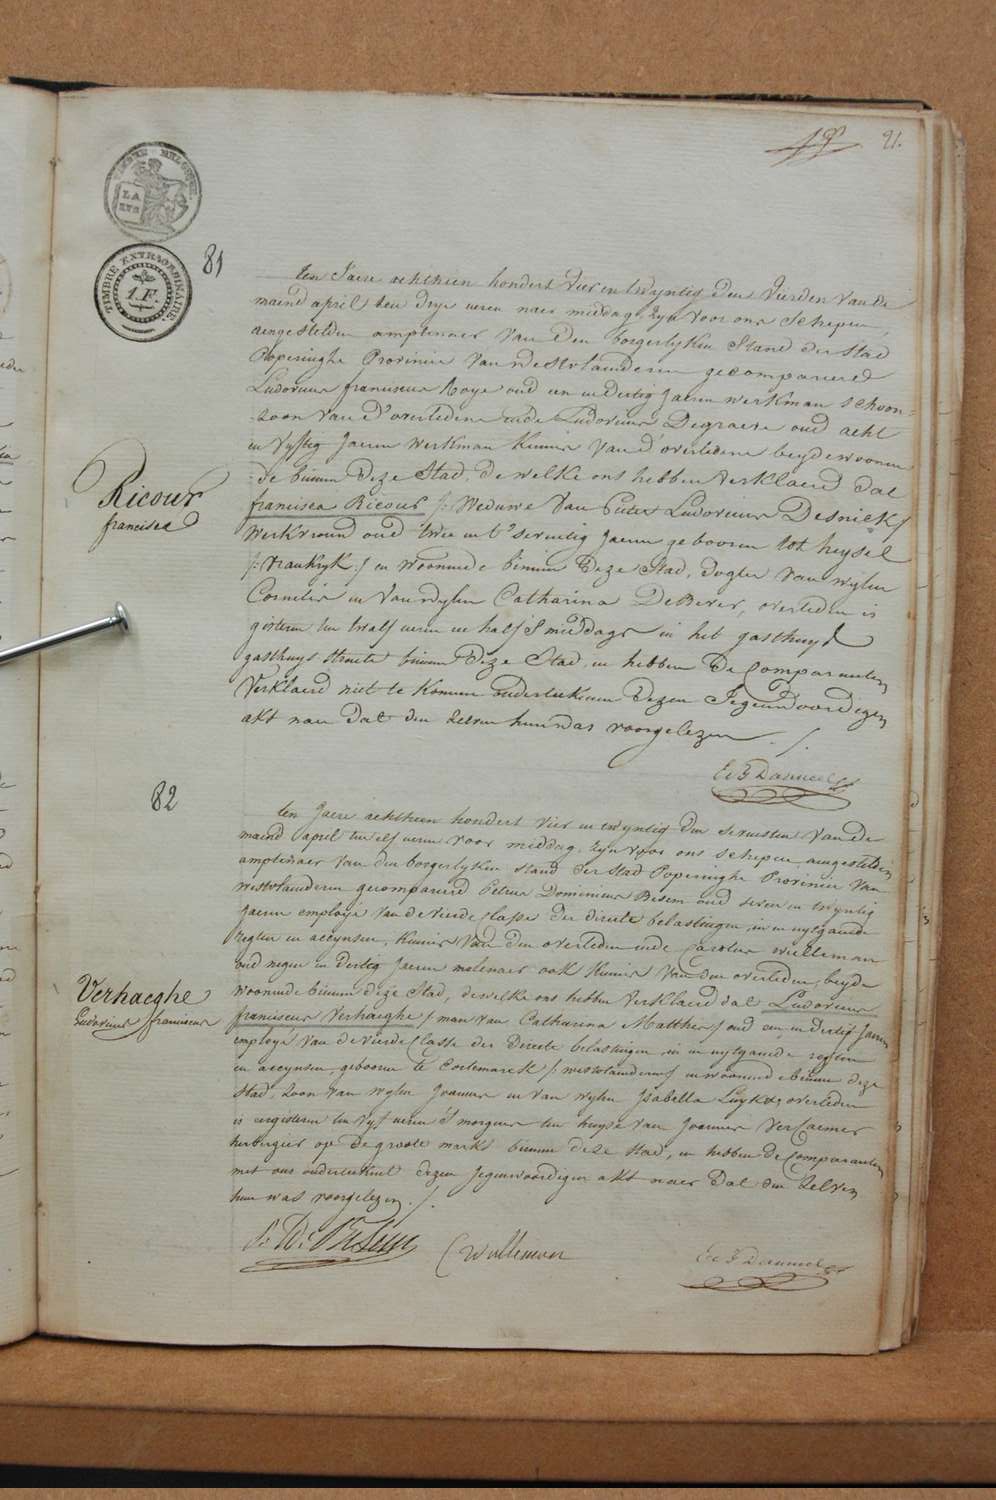 21.
TIMBRE BELGIQUE
LA
TIMBRE EXTRAORDINAIRE.
1.F.
81
Ten Jaere achthien hondert vier en twyntig den vierden van de
maend april ten drye ueren naer middag, zyn voor ons schepen,
aengestelden amptenaer van den borgerlyken Stand der Stad
Poperinghe Provincie van Westvlaenderen gecompareerd
Ludovicus franciscus Roye oud een en dertig Jaeren werkman schoon-
zoon van d'overledene ende Ludovicus Degraeve oud acht
en vyftig Jaeren werkman kennis van d'overledene beyde woonen-
de binnen deze Stad, dewelke ons hebben verklaerd dat
francisca Ricour /: weduwe van Ludovicus Desnick /
werkvrouw oud twee en t'seventig Jaeren gebooren tot heysel
/: vrankryk :/ en woonende binnen deze Stad, dogter van wylen
Cornelis en van wylen Catharina DeBever, overleden is
gisteren ten twalf ueren en half S'middags in het gasthuys
gasthuys straete binnen deze Stad, en hebben de Comparanten
Verklaerd niet te konnen onderteekenen dezen Tegenwoordigen
akt naer dat den zelven hun was voorgelezen ./.
Ricour
francisca
82
Ten Jaere achthien hondert vier en twyntig den sevensten van de
maend april ten elf ueren voor middag, zyn voor ons schepen aengestelden
amptenaer van den borgerlyken stand der Stad Poperinghe Provincie van
westvlaenderen gecompareerd Petrus Dominicus Besem oud seven en twyntig
Jaeren employé van de vierde classe der directe belastingen, in en uytgaende
regten en accynsen, kennis van den overleden ende Carolus wulleman
oud negen en dertig Jaeren molenaer ook kennis van den overleden, beyde
woonende binnen deze Stad, dewelke ons hebben verklaerd dat Ludovicus
franciscus Verhaeghe / man van Catharina Matthes / oud een en dertig Jaeren
employé van de vierde Classe der Directe belastingen, in en uytgaende regten
en accynsen, gebooren te Cortemarck /: westvlaenderen / en woonende binnen deze
Stad, zoon van wylen Joannes en van wylen Isabella Luyckx, overleden
is eergisteren ten vyf ueren S'morgens ten huyse van Joannes Vercaemer
herbergier op de groote markt binnen deze Stad, en hebben de Comparanten
met ons onderteekent dezen Jegenwoordigen akt naer dat den zelven
hun was voorgelezen ./.
Verhaeghe
Ludovicus franciscus
C Wulleman